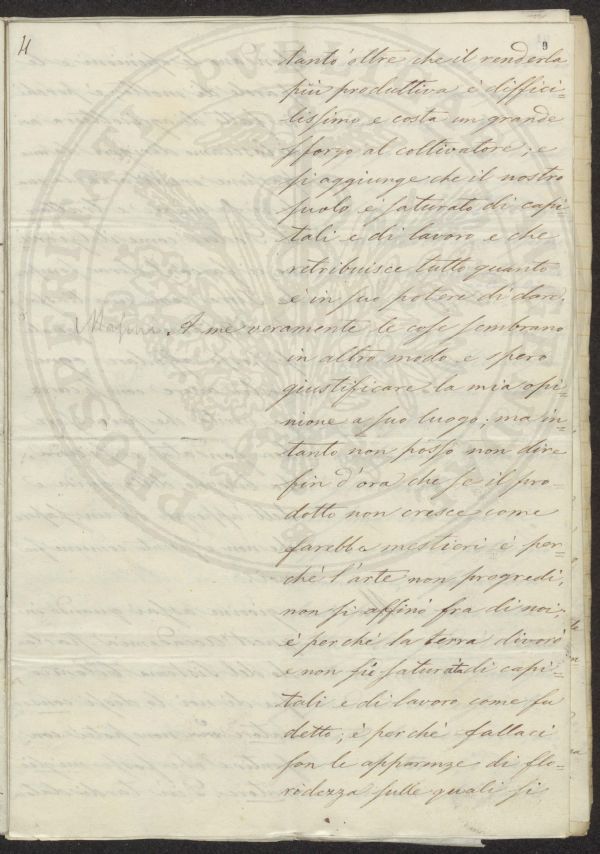 4
9
tanto oltre che il renderla
più produttiva è diffici=
lissimo e costa un grande
sforzo al coltivatore; e
si aggiunge che il nostro
suolo è saturato di capi=
tali e di lavoro e che
retribuisce tutto quanto
è in suo potere di dare.
A me veramente le cose sembrano
in altro modo e spero
giustificare la mia opi=
nione a suo luogo; ma in=
tanto non posso non dire
fin d'ora che se il pro=
dotto non cresce come
farebbe mestieri è per=
chè l'arte non progredì,
non si affinò fra di noi;
è perchè la terra divorò
e non fu saturata di capi=
tali e di lavoro come fu
detto; è perchè fallaci
son le apparenze di flo=
ridezza sulle quali si